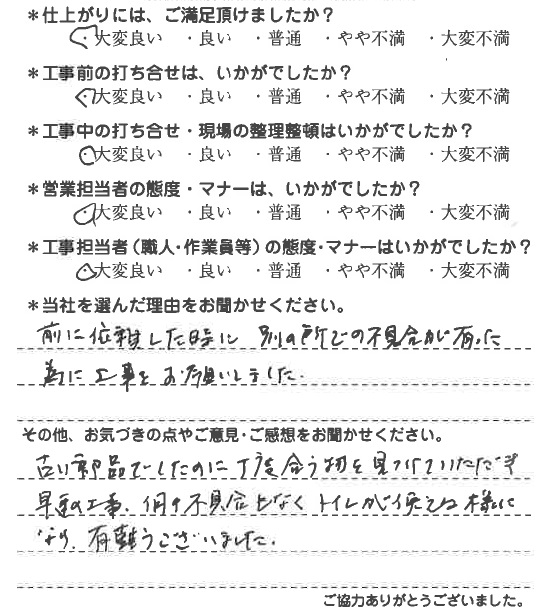 *仕上がりには、ご満足頂けましたか?
・大変良い ・良い ・普通 ・やや不満 ・大変不満
*工事前の打ち合せは、いかがでしたか?
・大変良い ・良い ・普通 ・やや不満 ・大変不満
*工事中の打ち合せ・現場の整理整頓はいかがでしたか?
・大変良い ・良い ・普通 ・やや不満 ・大変不満
*営業担当者の態度・マナーは、いかがでしたか?
・大変良い ・良い ・普通 ・やや不満 ・大変不満
*工事担当者(職人・作業員等)の態度・マナーはいかがでしたか?
・大変良い ・良い ・普通 ・やや不満 ・大変不満
*当社を選んだ理由をお聞かせください。
前に依頼した時に 別の所での不具合が有った
為に工事をお願いしました.
その他、お気づきの点やご意見・ご感想をお聞かせください。
古い部品でしたのに丁度合う物を見つけていただき
早速の工事、何の不具合もなくトイレが使える様に
なり、有難うございました.
ご協力ありがとうございました。